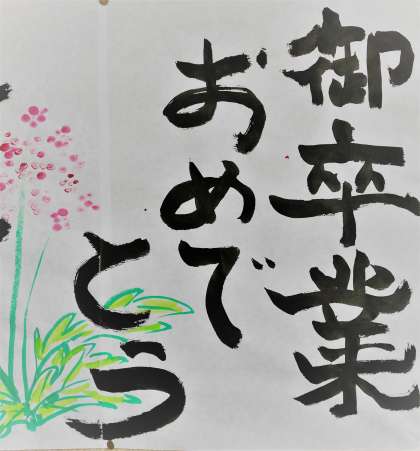 御卒業
おめで
とう